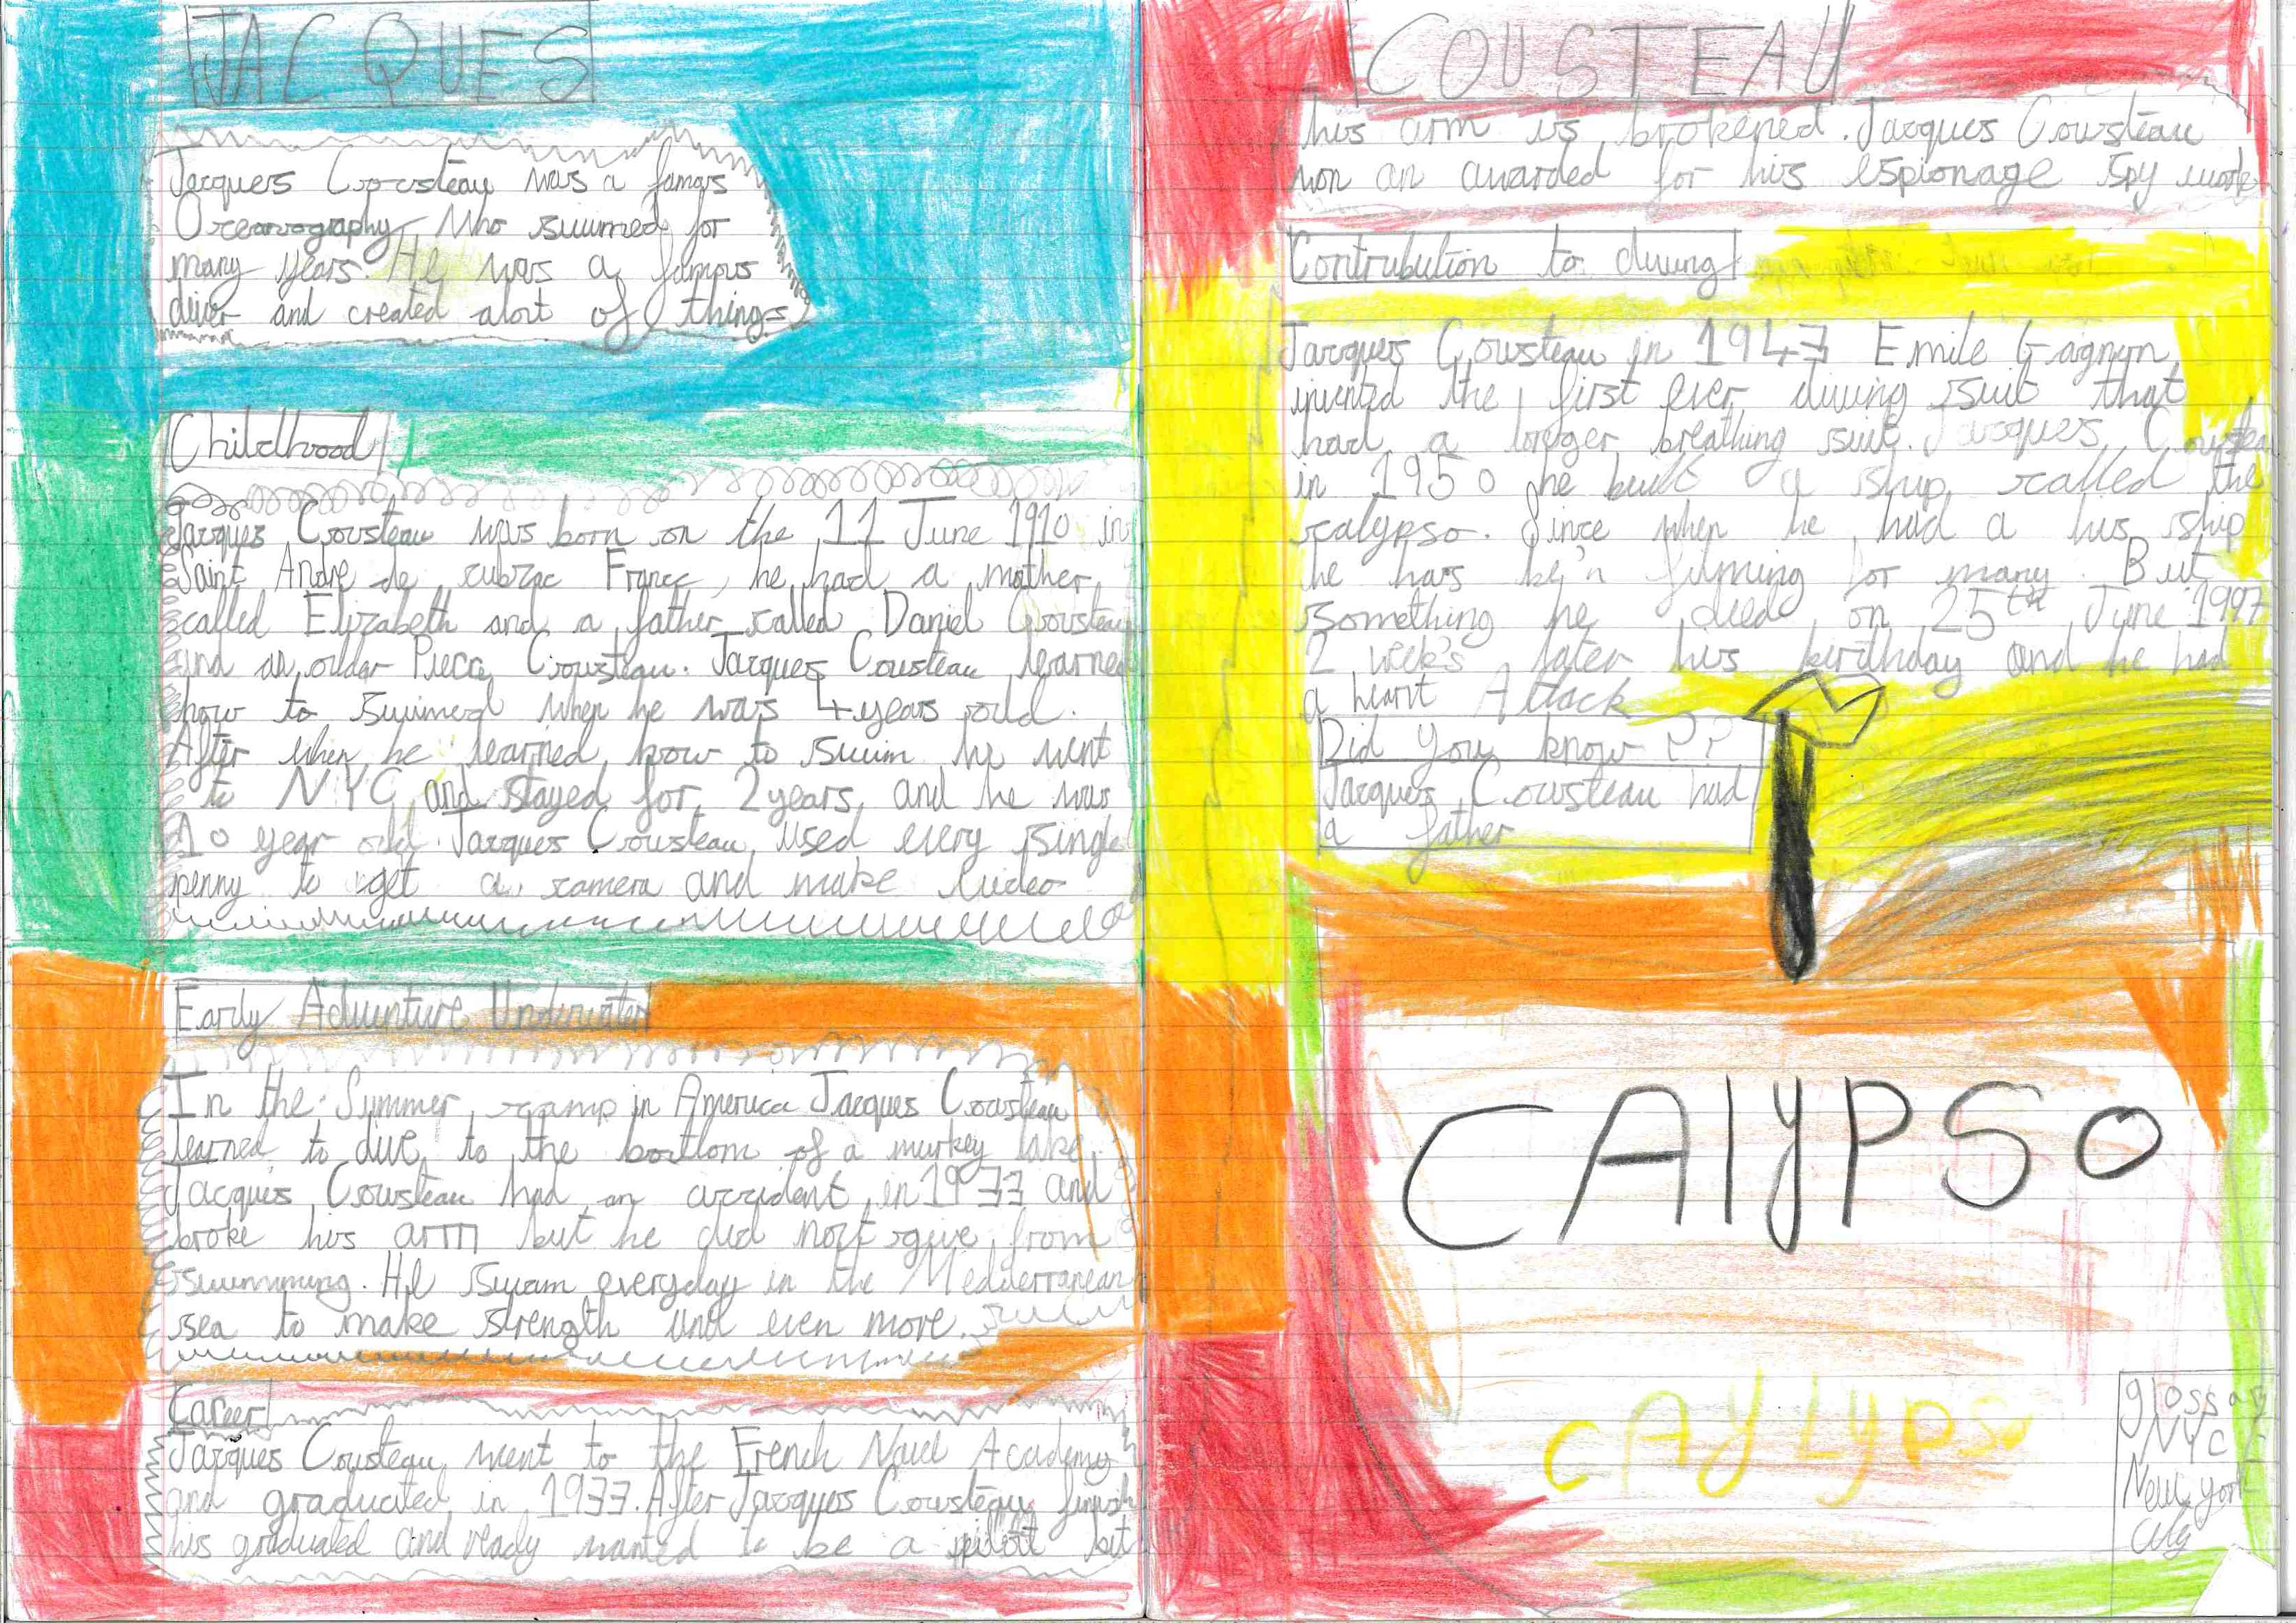 JACQUES
Jacques Cousteau was a famos
Oceanography who swimmed for
many years. He was a famous
diver and created alort of things
Childhood
Jacques Cousteau was born on the 11 June 1910 in
Saint Andre de cubzac France, he had a mother
called Elizabeth and a father called Daniel Cousteau
and an older Pierre Cousteau. Jacques Cousteau learned
how to swimmed when he was 4 years old.
After when he learned how to swim he went
to NYC and stayed for 2 years, and he was
10 year old. Jacques Cousteau used every single
penny to get a camera and make video
Early Adventure Underwater
In the Summer camp in America Jacques Cousteau
learned to dive to the bottom of a murkey lake.
Jacques Cousteau had an accident in 1933 and
broke his arm but he did not give from
swimming. He swam everyday in the Mediterranean
sea to make strength and even more.
Career
Jacques Cousteau went to the French Navel Academy
and graduated in 1933. After Jacques Cousteau finish
his graduated and ready wanted to be a pilot but
COUSTEAU
his arm is brokened. Jacques Cousteau
won an awarded for his espionage spy work
Contrubution to diving
Jacques Cousteau in 1947 Emile Gagnon
invented the first ever diving suit that
had a longer breathing suit. Jacques Cousteau
in 1950 he built a ship called the
calypso. Since when he had a his ship
he has be'n filming for many. But
something he died on 25th June 1997
2 week's later his birthday and he had
a heart Attack
Did you know ??
Jacques Cousteau had
a father
CAlyPSO
CAYLYPSo
glossary
NYC
New york
City